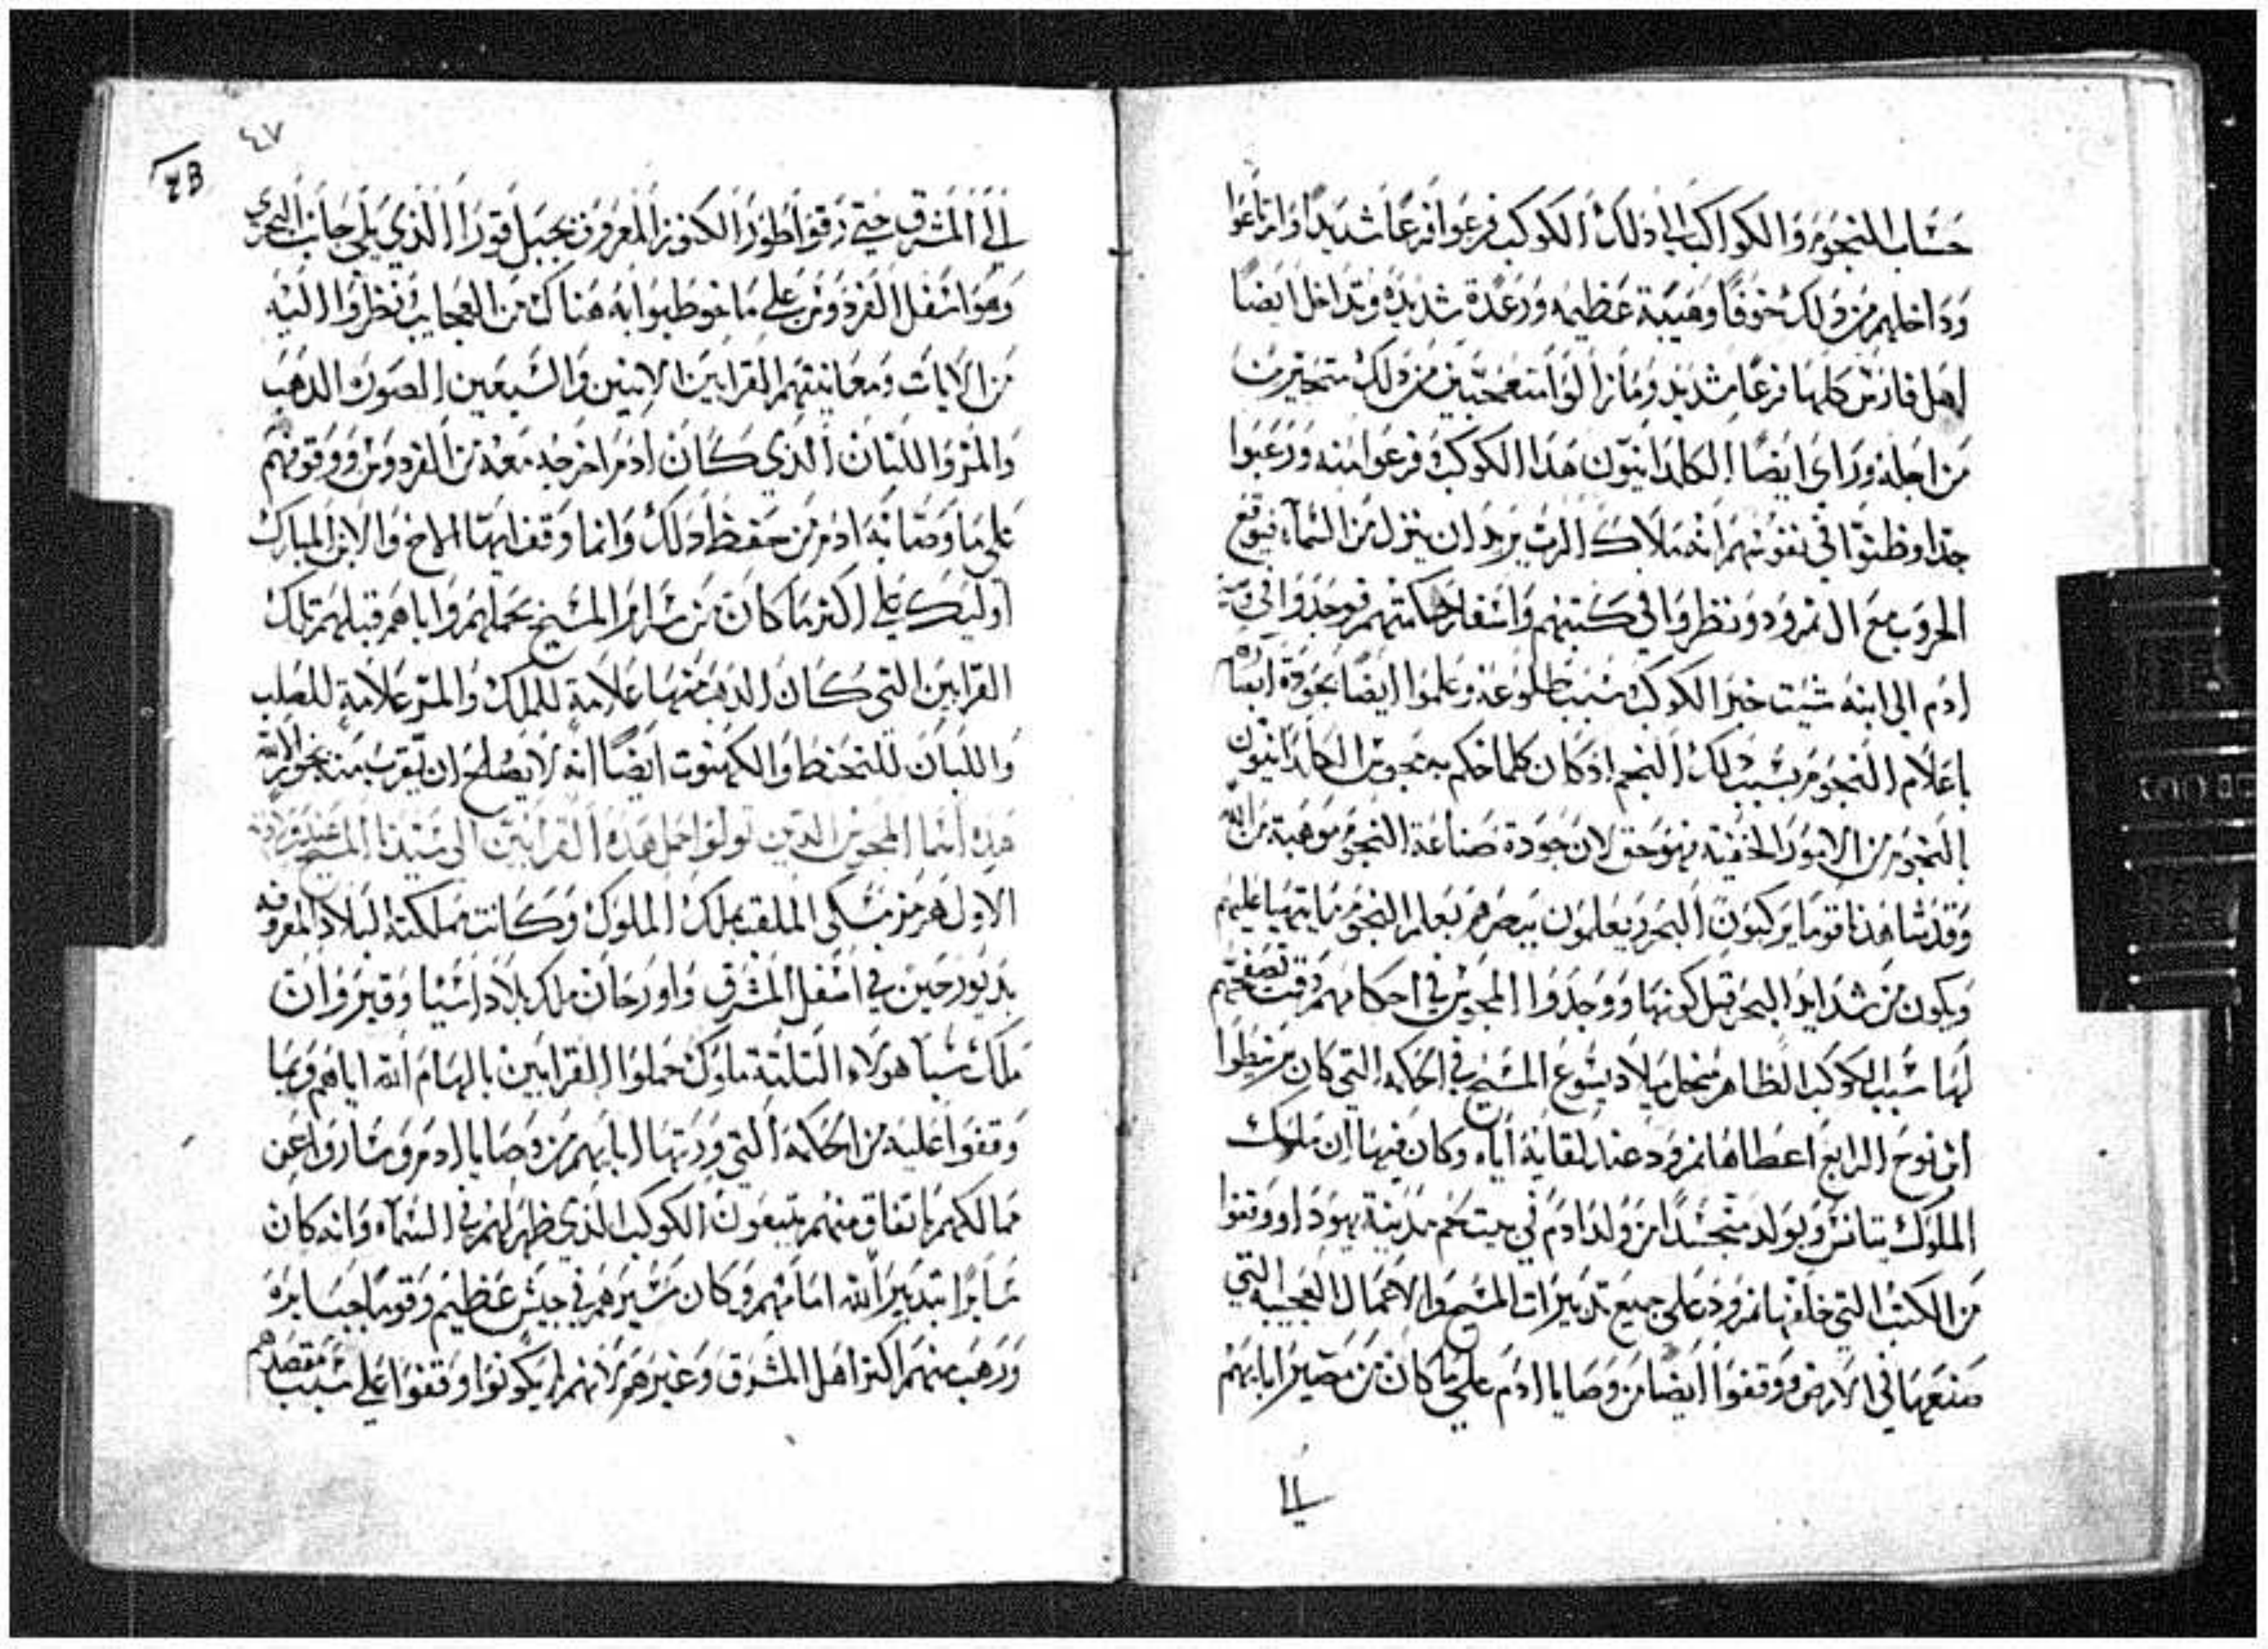 حساب النجوم والكواكب الي ذلك الكوكب فزعوا فزعًا شديدًا وارتاعوا
وداخلهم من ذلك خوفًا وهيبة عظيمه ورعدة شديده وتداخل ايضًا
اهل فارس كلها فزعًا شديد وما زالوا متعجبين من ذلك متحيرين
من اجله وراي ايضًا الكلدانيون هذا الكوكب وفزعوا منه ورعبوا
جدا وظنوا في نفوسهم انه ملاك الرب يريد ان ينزل من السمآء فيوقع
الحروب مع ال نمرود ونظروا في كتبهم واسفار حكمتهم فوجدوا في وصية
ادم الي ابنه شيت خبر الكوكب وسبب طلوعه وعلموا ايضًا بجودة
باعلام النجوم بسبب ذلك النجم اذ كان كلما حكم به مجوس الكلدانيون
بالنجوم من الامور الخفية فهو حق لان جودة صناعة النجوم موهبة من الله
وقد شاهدنا قوما يركبون البحر ويعلمون ببصرهم بعلم النجوم ما يتهيا عليهم
ويكون من شدايد البحر قبل كونها ووجدوا المجوس في احكامهم وقت تصفحهم
لها سبب الكوكب الظاهر من اجل ميلاد يسوع المسيح في الحكمه التي كان
ابن نوح الرابع اعطاها نمرود عند لقايه اياه وكان فيها ان ملك
الملوك يتانس ويولد متجسدًا من ولد ادم في بيت لحم مدينة يهودا ووقفوا
من الكتب التي خلفها نمرود علي جميع تدبيرات المسيح والاعمال العجيبه التي
صنعها في الارض ووقفوا ايضًا من وصايا ادم علي ما كان من مصير ابايهم
الي
٤٧
الي المشرق حتي رقوا طور الكنوز المعروف بجبل قورا الذي يلي جانب البحري
وهو اسفل الفردوس علي ما خوطبوا به هناك من العجايب نظروا اليه
من الايات ومعاينتهم القرابين الاثنين والسبعين الصوره الذهب
والمر واللبان الذي كان ادم اخرجه معه من الفردوس ووقوفهم
علي ما وصا به ادم من حفظ ذلك وانما وقف ايها الاخ والابن المبارك
اوليك علي اكثر ما كان من سراير المسيح بحملهم واياهم قبلهم تلك
القرابين التي كان الذهب منها علامة للملك والمر علامة للصلب
واللبان للتحنط والكهنوت ايضًا انه لا يصلح ان يقرب منه بخور الا لله
هذه اسما المجوس الذين تولوا حمل هذه القرابين الي سيدنا المسيح عند
الاول هرمز مسكي الملقب بملك الملوك وكانت مملكته البلاد المعروفه
بديورجين في اسفل المشرق واورحان ملك بلاد اسيا وقيروان
ملك سبا هولاء التلتة ملوك حملوا القرابين بالهام الله اياهم وبما
وقفوا عليه من الحكمه التي ورتها ابايهم من وصايا ادم وساروا عن
ممالكهم باتفاق منهم يتبعون الكوكب الذي ظهر لهم في السمآء وانه كان
سايرا بتدبير الله امامهم وكان مسيرهم في جيش عظيم وقوما جبابره
ورهب منهم اكثر اهل المشرق وغيرهم لانهم لم يكونوا وقفوا علي سبب مقصدهم